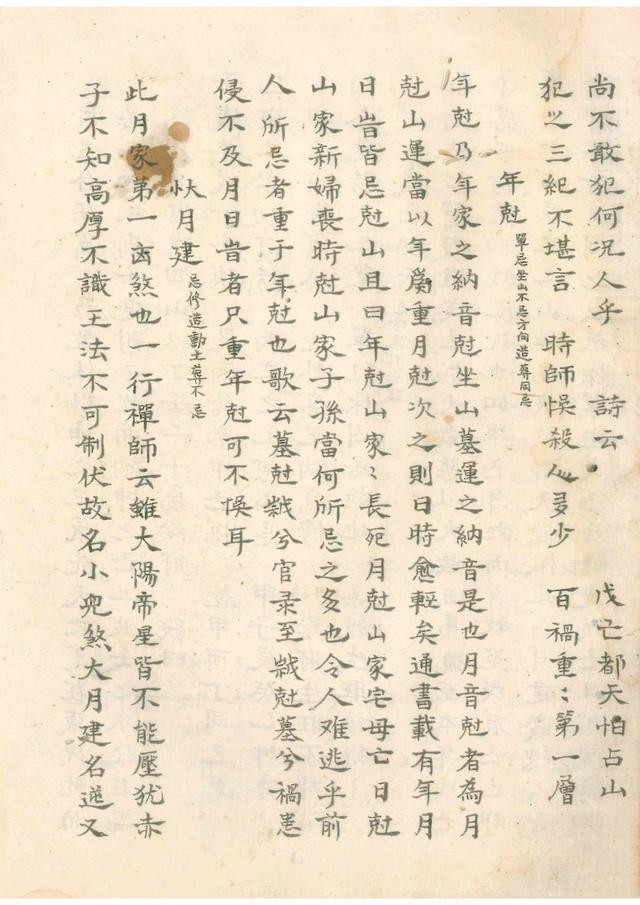 尚不敢犯何况人乎　詩云　　戊亡都天怕占山
犯之三紀不堪言　時師悮殺人多少　百禍重〻第一層
年尅 單忌坐山不忌方向造葬同忌
年尅乃年家之納音尅坐山墓運之納音是也月音尅者為月
尅山運當以年爲重月尅次之則日時愈輕矣通書載有年月
日旹皆忌尅山且曰年尅山家〻長死月尅山家宅母亡日尅
山家新婦喪時尅山家子孫當何所忌之多也令人难逃乎前
人所忌者重于年尅也歌云墓尅兮官录至尅墓兮禍患
侵不及月日旹者只重年尅可不悮耳
月建 忌修造動土葬不忌
此月家第一凶煞也一行禪師云雖大陽帝星皆不能壓犹赤
子不知高厚不識王法不可制伏故名小兒煞大月建名又